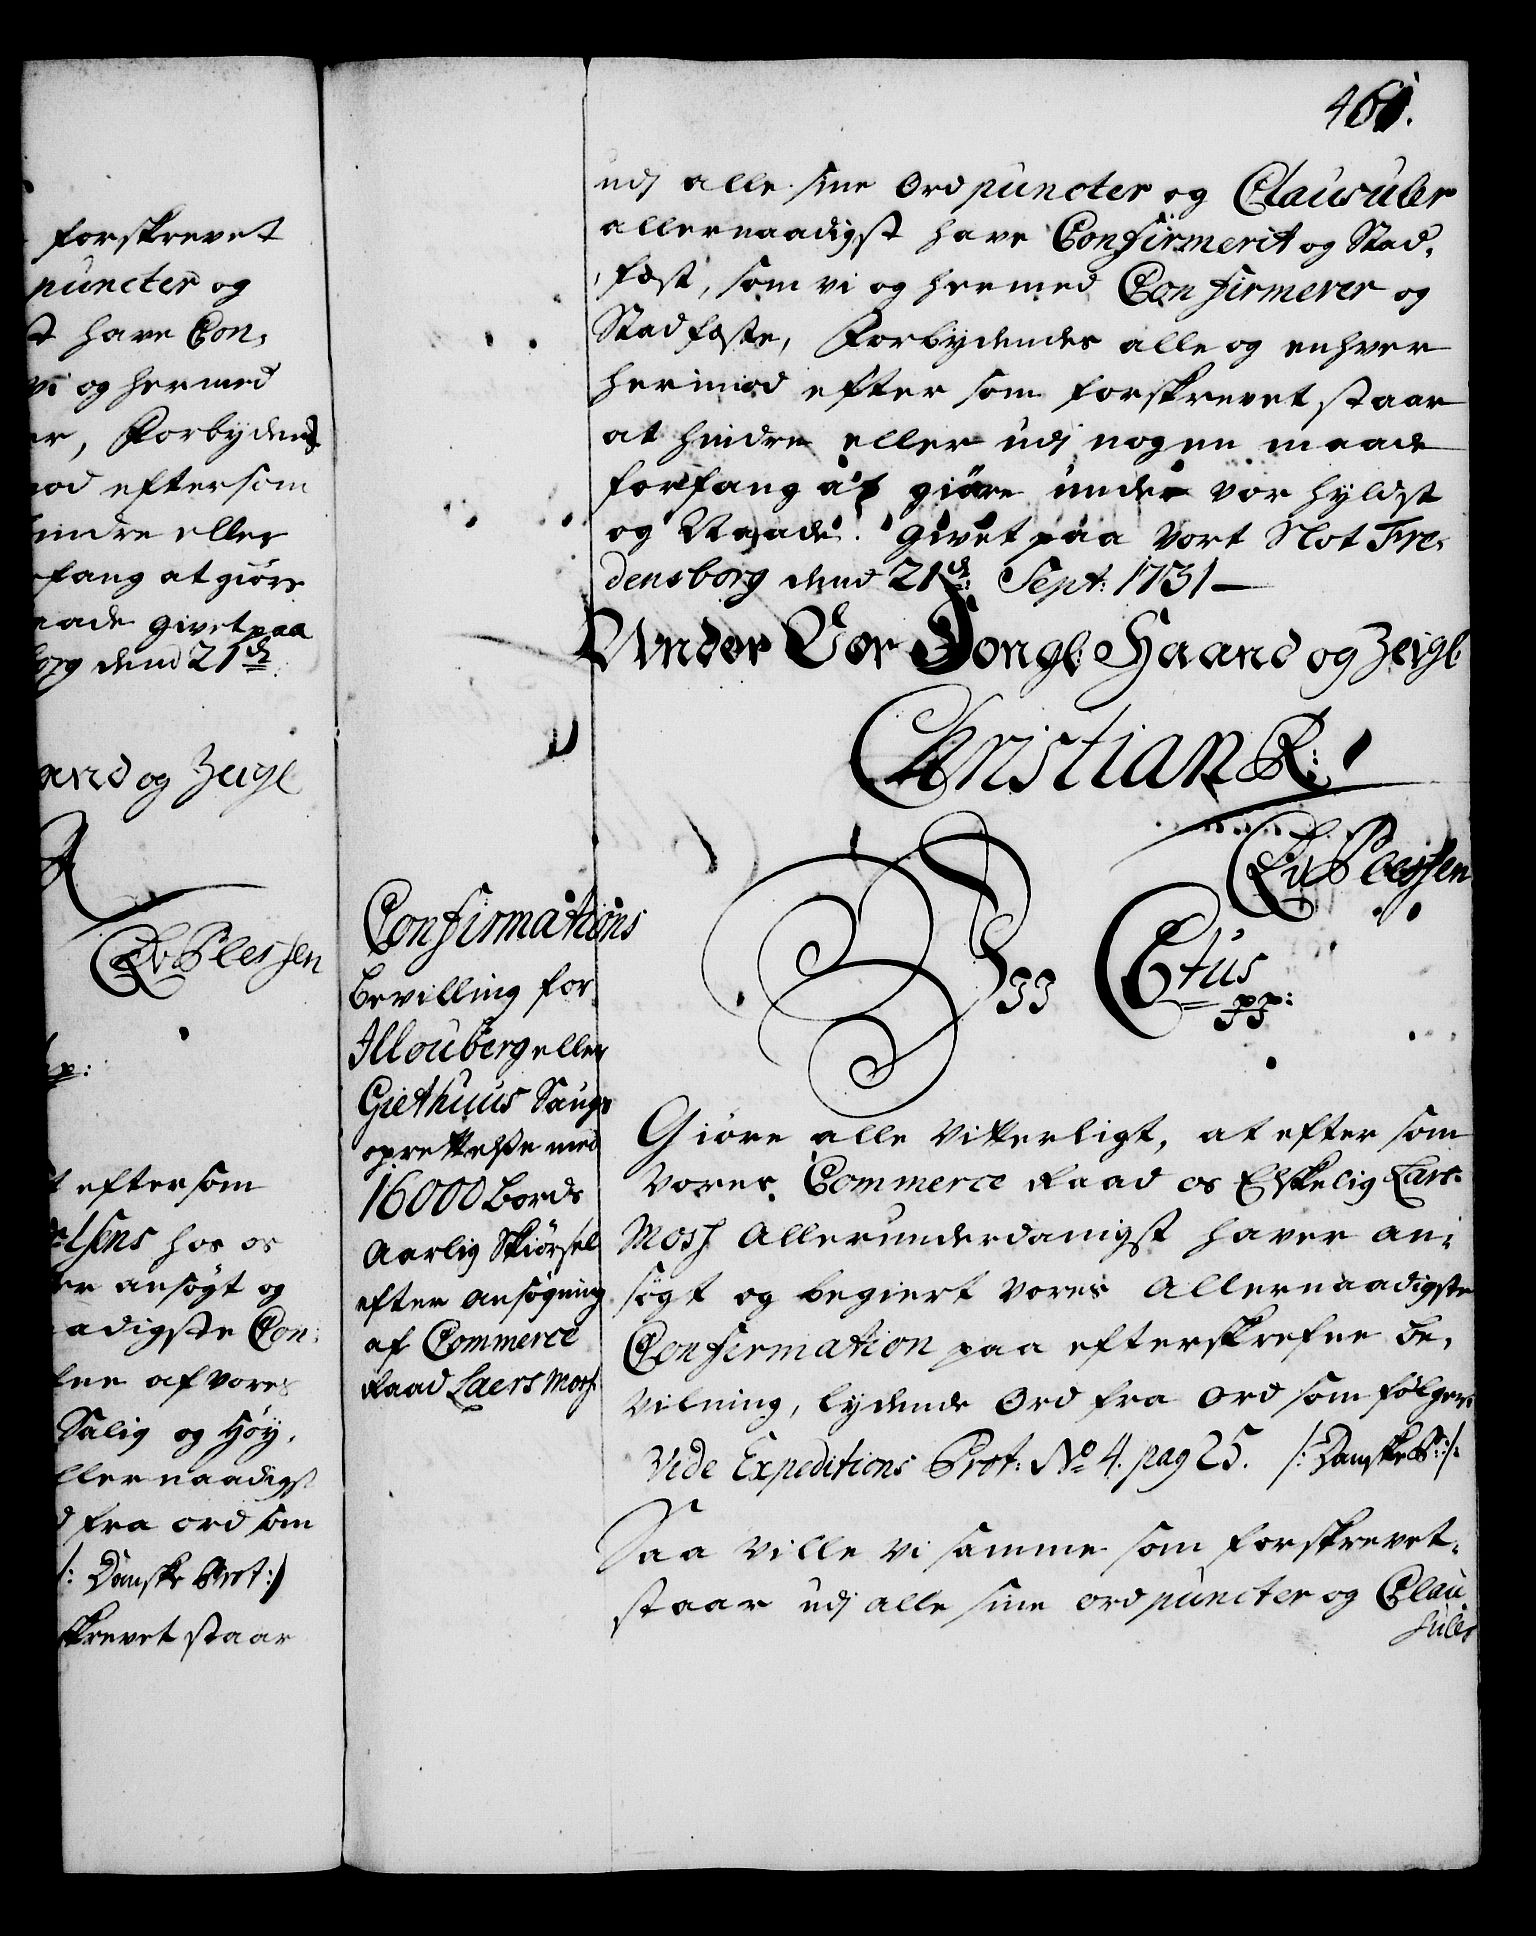 forskrevet
puncter og
have Con-
vi og hermed
er, Forbydend
mod eftersom
hindre eller
fang at giøre
aade givet paa
borg dend 21de
aand og Zeigl
R
CAvPlessen
pp:
eftersom
elsens hos os
ansøgt og
adigste Con-
fne af vores
Salig og Høy-
llernaadigst
fra ord som
/: Danske Prot:/
skrevet staar
461.
udj alle sine Ord puncter og Clausuler
allernaadigst have Confirmerit og Stad-
fæst, som vi og hermed Confirmerer og
Stadfæste, Forbydendes alle og enhver
herimod efter som forskrevet staar
at hindre eller udj nogen maade
forfang at giøre under vor hyldst
og Naade. Givet paa Vort Slot Fre-
densborg dend 21de Sept: 1731
Under Vor Kongl: Haand og Zeigl
Christian R:
CAvPlessen
Confirmations
Bevilling for
Mouberg eller
Giethuus Saugs
oprettelse med
16000 Bords
Aarlig Skiørsel
efter Ansøgning
af Commerce
Raad Laers Mos
Ctus
pp:
Giøre alle Vitterligt, at efter som
Vores Commerce Raad os Elskelig Lars
Mos Allerunderdanigst haver an-
søgt og begiert Vores Allernaadigste
Confirmation paa efterskrefne Be-
vilning, lydende Ord fra Ord som følger
Vide Expeditions Prot: No 4. pag 25. /: Danske P::/
Saa Ville Vi samme som forskrevet
staar udj alle sine ord puncter og Clau-
suler